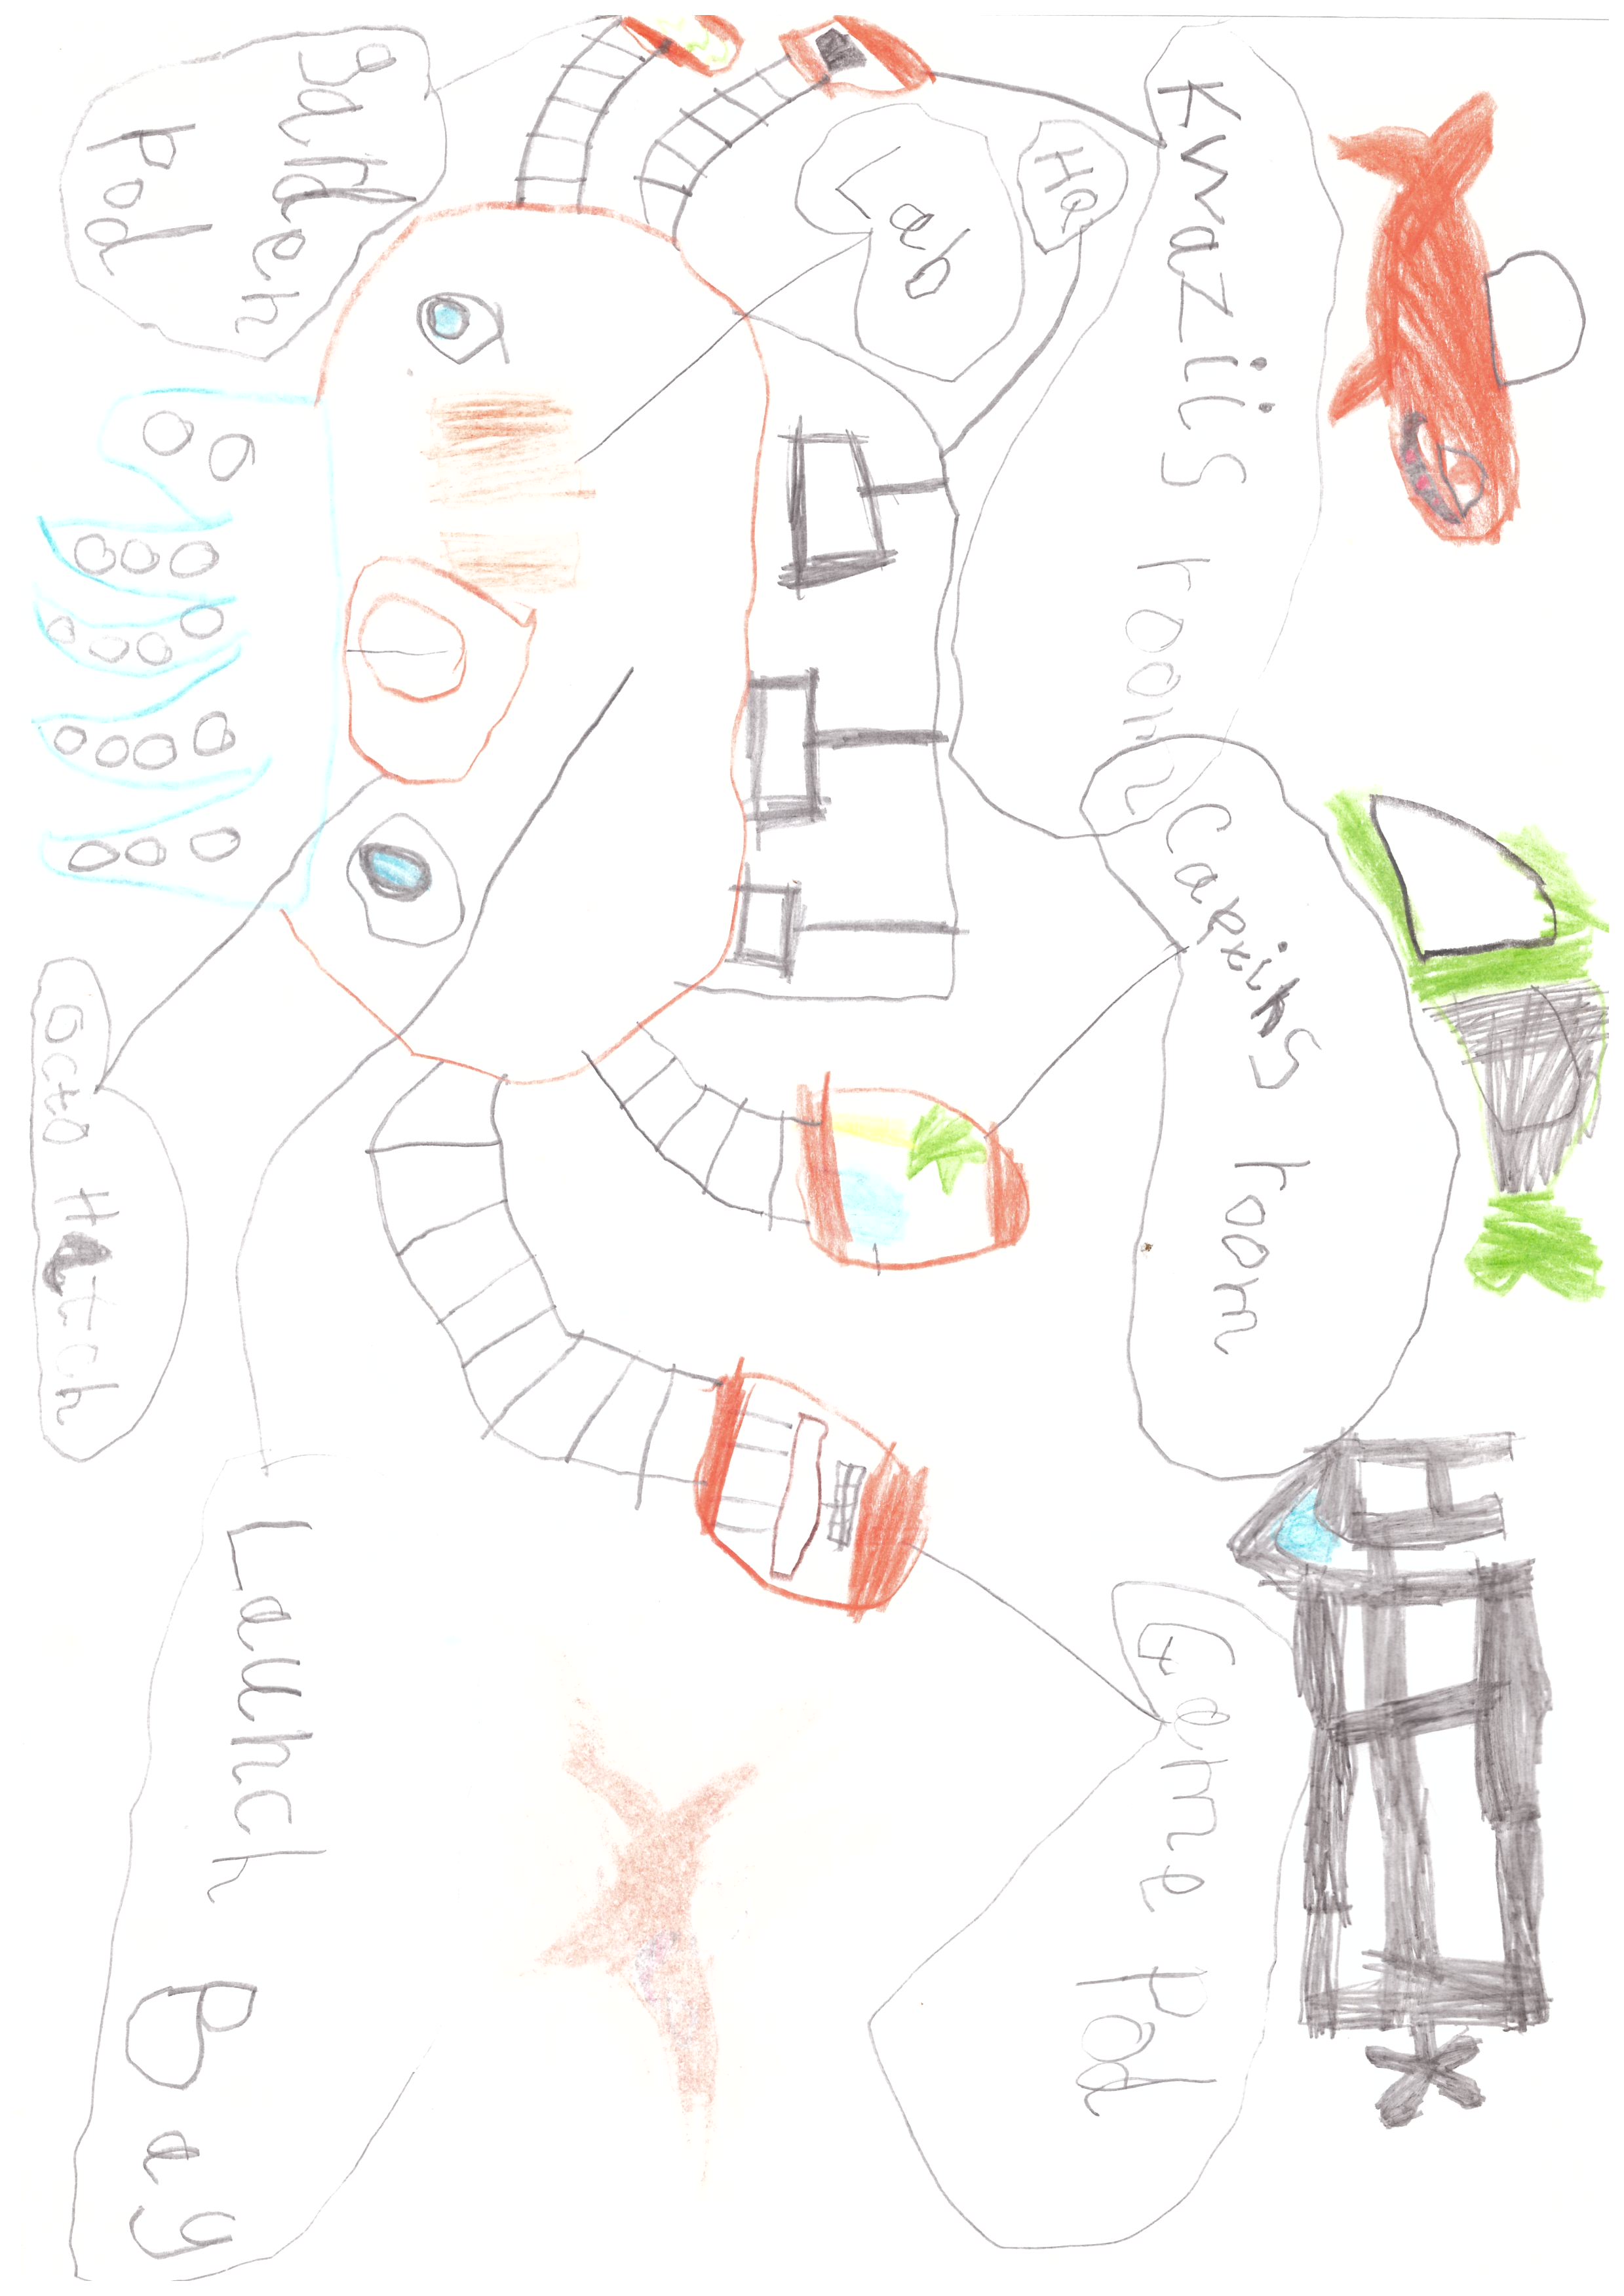 Kwaziis room
Capxins room
Game Pod
HQ
Lab
garden
Pod
Launch Bay
octo Hatch